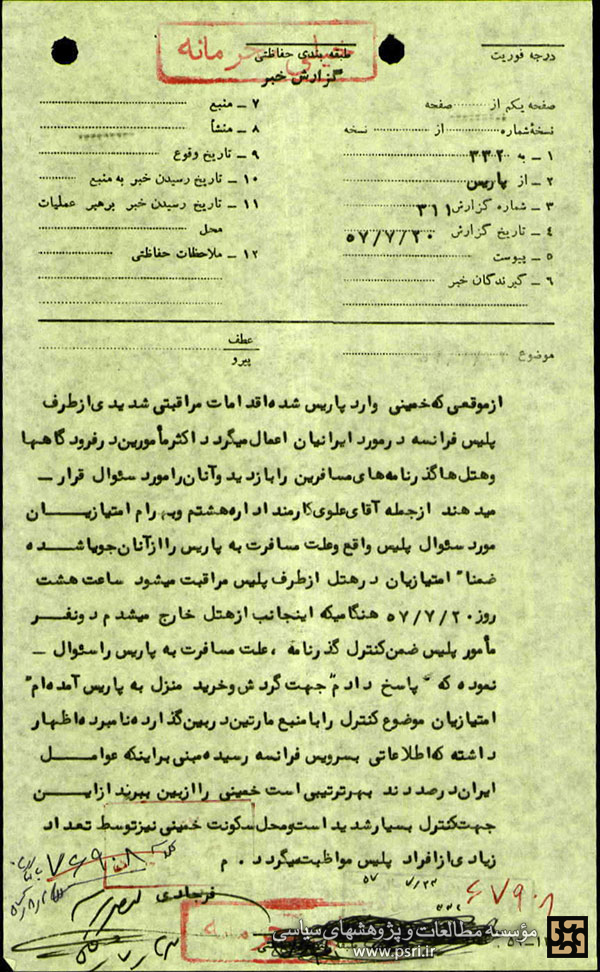 خیلی محرمانه
درجه فوریت
طبقه بندی حفاظتی
گزارش خبر
صفحه یکم از صفحه
نسخه شماره از نسخه
۱ ـ به ۳۳۲
۲ ـ از پاریس
۳ ـ شماره گزارش ۳۱۱
۴ ـ تاریخ گزارش ۵۷/۷/۲۰
۵ ـ پیوست
۶ ـ گیرندگان خبر
۷ ـ منبع
۸ ـ منشأ
۹ ـ تاریخ وقوع
۱۰ ـ تاریخ رسیدن خبر به منبع
۱۱ ـ تاریخ رسیدن خبر برهبر عملیات
محل
۱۲ ـ ملاحظات حفاظتی
موضوع
عطف
پیرو
ازموقعی که خمینی وارد پاریس شده اقدامات مراقبتی شدیدی ازطرف
پلیس فرانسه درمورد ایرانیان اعمال میگردد اکثر مأمورین درفرودگاهها
وهتل ها گذرنامه های مسافرین را بازدید وآنان را مورد سئوال قرار ـ
میدهند ازجمله آقای علوی کارمند اداره هشتم وبهرام امتیازیان
مورد سئوال پلیس واقع وعلت مسافرت به پاریس را ازآنان جویا شده
ضمنا" امتیازیان درهتل ازطرف پلیس مراقبت میشود ساعت هشت
روز ۵۷/۷/۲۰ هنگامیکه اینجانب ازهتل خارج میشدم دونفر
مأمور پلیس ضمن کنترل گذرنامه ، علت مسافرت به پاریس را سئوال ـ
نموده که " پاسخ دادم" جهت گردش وخرید منزل به پاریس آمده ام"
امتیازیان موضوع کنترل را با منبع مارتین دربین گذارده نامبرده اظهار
داشته که اطلاعاتی بسرویس فرانسه رسیده مبنی براینکه عوامل
ایران درصددند بهرترتیبی است خمینی را ازبین ببرند ازاین
جهت کنترل بسیار شدید است ومحل سکونت خمینی نیز توسط تعداد
زیادی ازافراد پلیس مواظبت میگردد . م
فرجادی
۶۷۹۰۸
مؤسسه مطالعات و پژوهشهای سیاسی
www.psri.ir